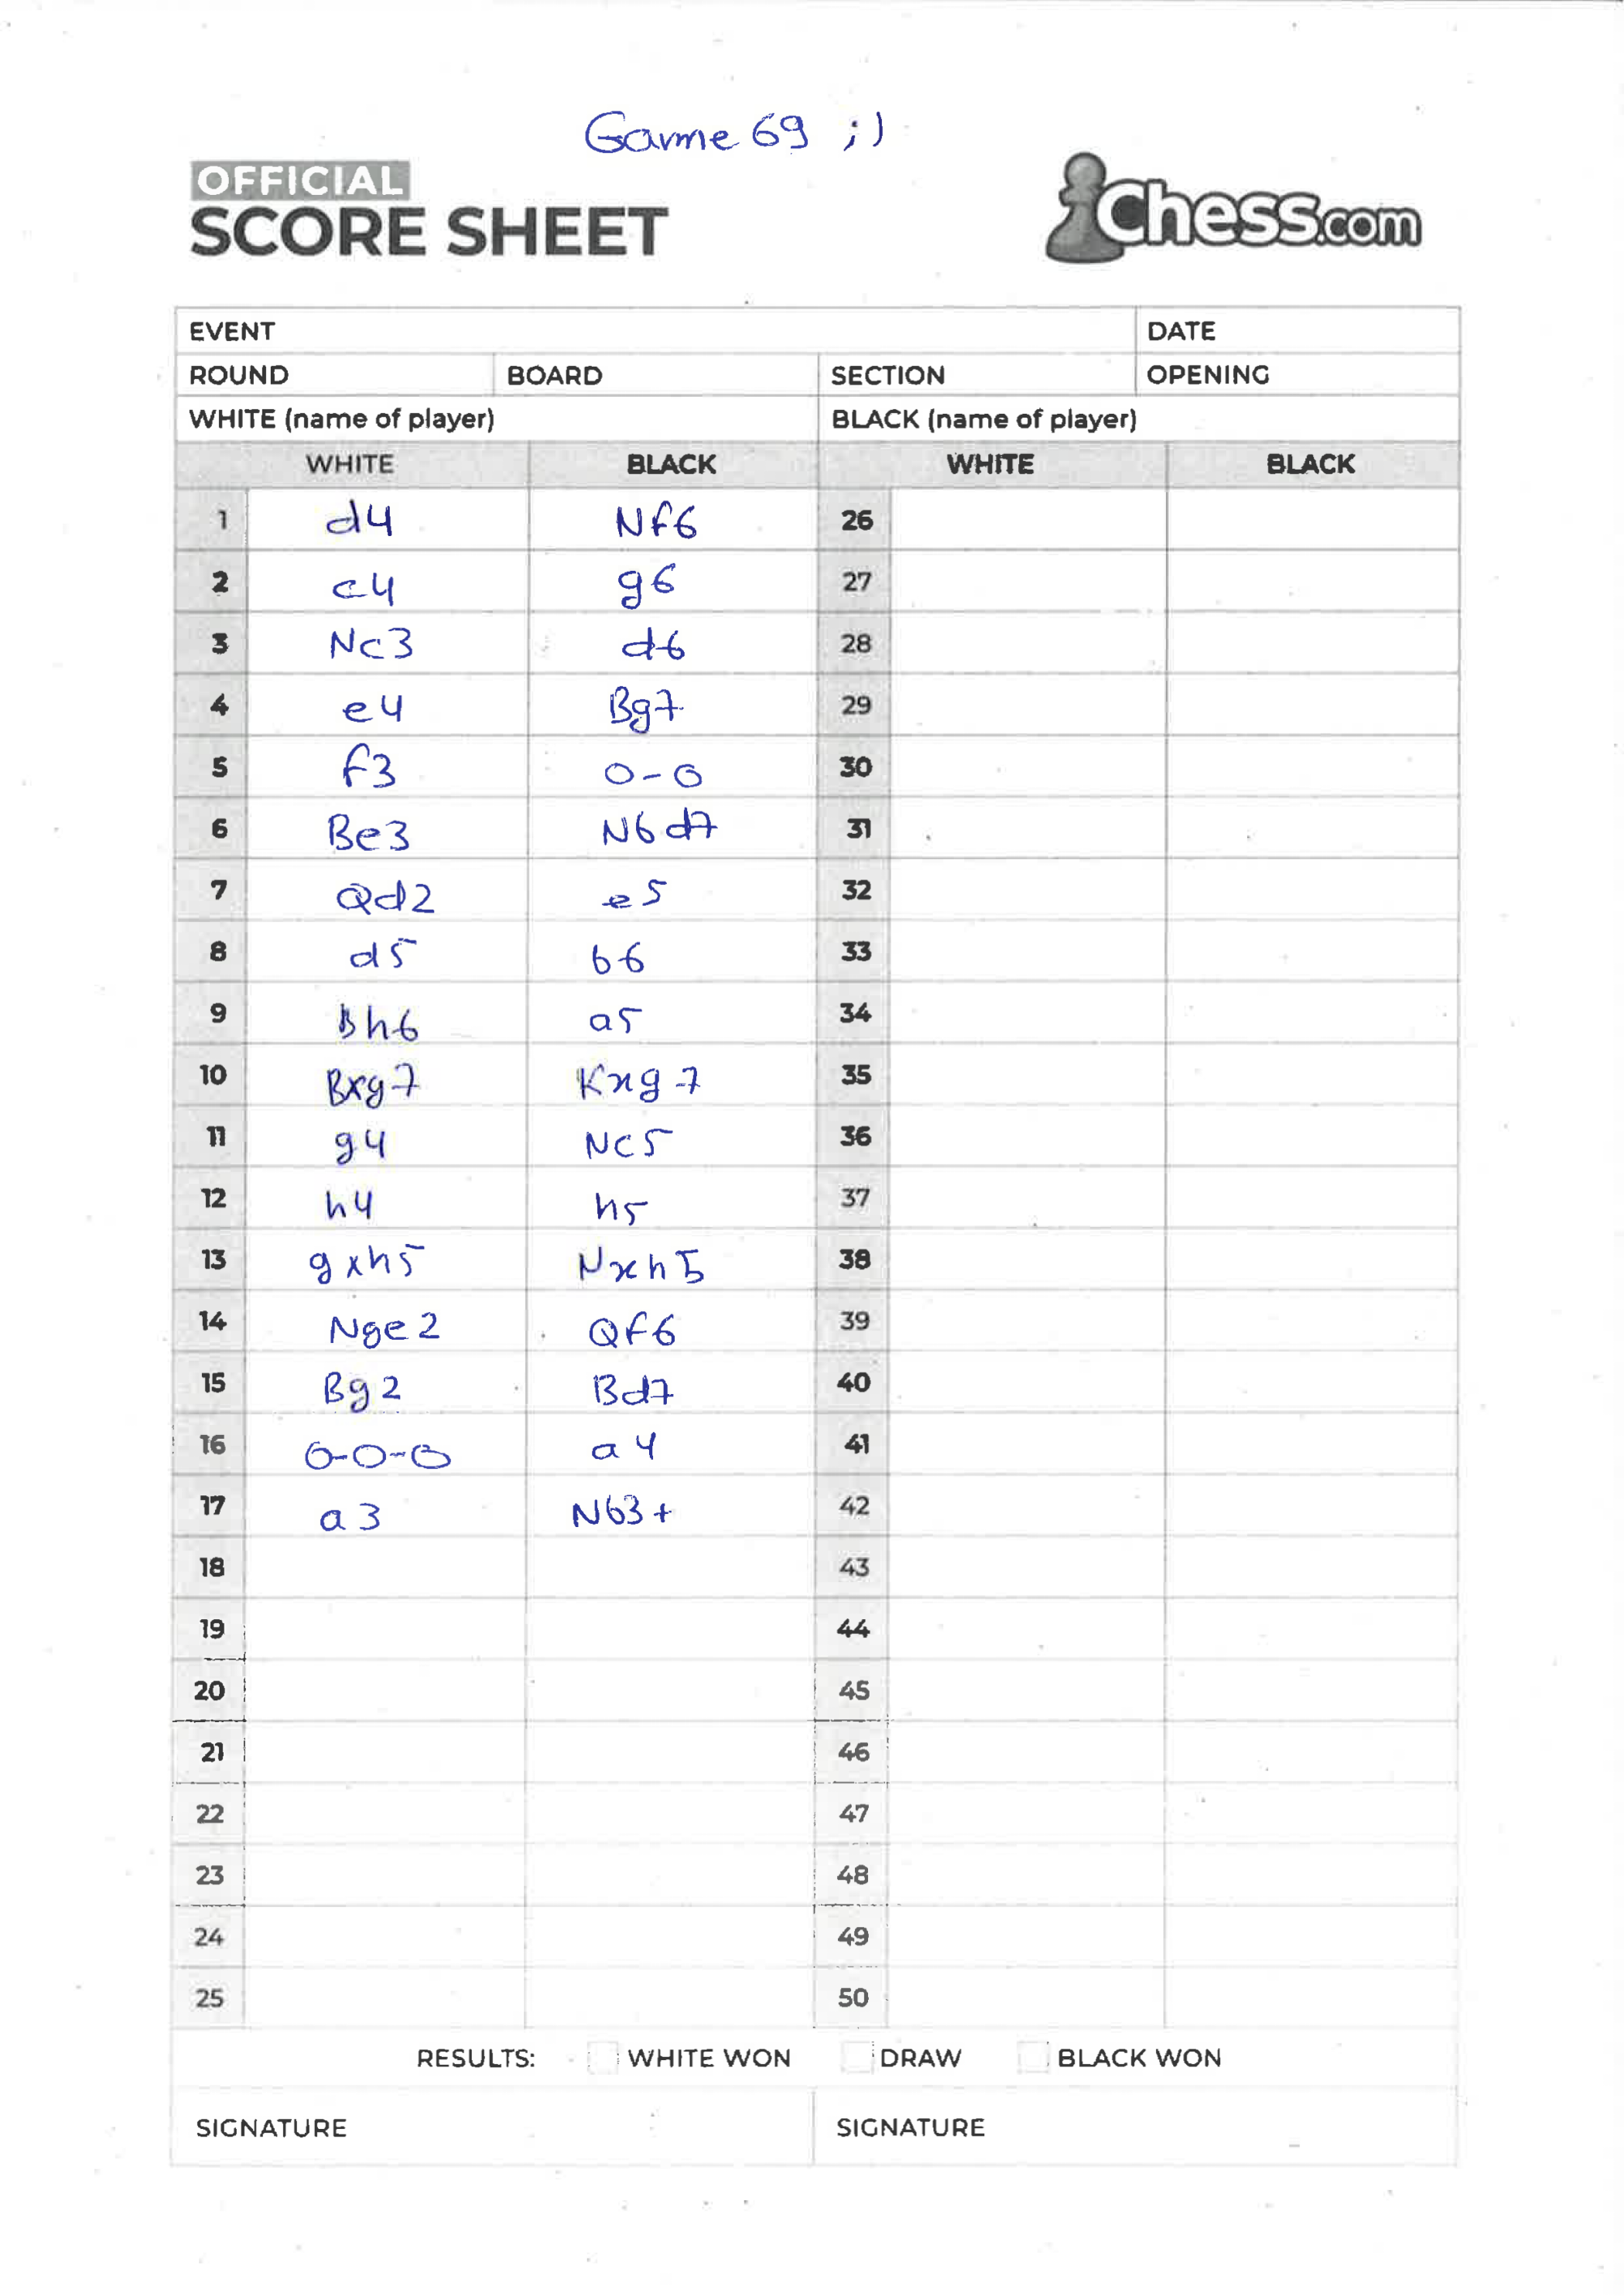 Game 69 ;)
OFFICIAL
SCORE SHEET
Chess.com
EVENT DATE
ROUND BOARD SECTION OPENING
WHITE (name of player) BLACK (name of player)
WHITE BLACK WHITE BLACK
1 d4 Nf6 26
2 c4 g6 27
3 Nc3 d6 28
4 e4 Bg7 29
5 f3 0-0 30
6 Be3 Nbd7 31
7 Qd2 e5 32
8 d5 b6 33
9 Bh6 a5 34
10 Bxg7 Kxg7 35
11 g4 Nc5 36
12 h4 h5 37
13 gxh5 Nxh5 38
14 Nge2 Qf6 39
15 Bg2 Bd7 40
16 0-0-0 a4 41
17 a3 Nb3+ 42
18 43
19 44
20 45
21 46
22 47
23 48
24 49
25 50
RESULTS: WHITE WON DRAW BLACK WON
SIGNATURE SIGNATURE